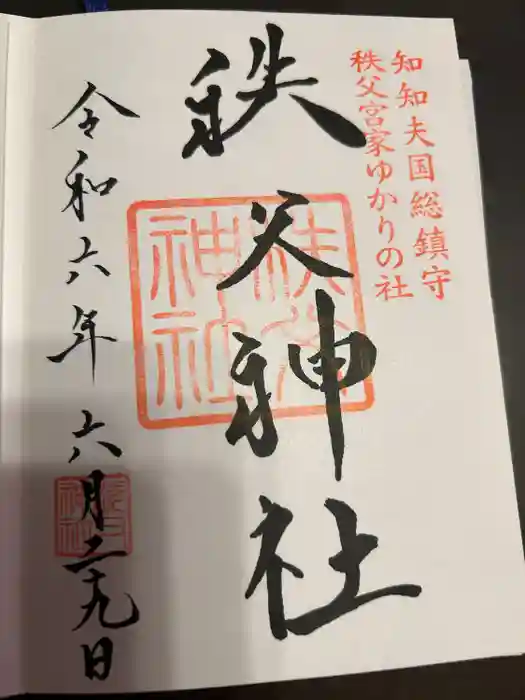 知知夫国総鎮守
秩父宮家ゆかりの社
秩父神社
秩父神社
令和六年 六月二十九日